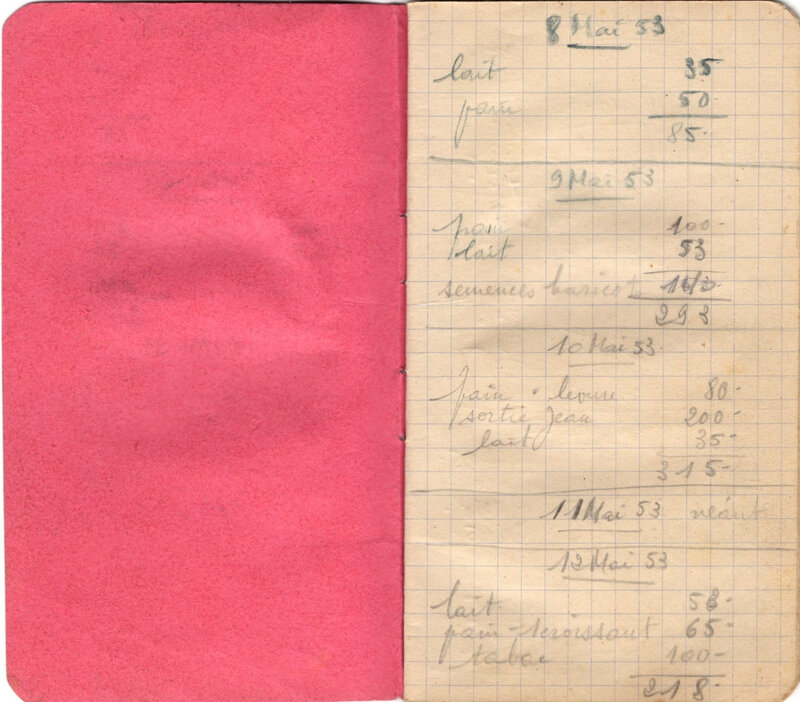 8 Mai 53
lait 35
pain 50-
85-
9 Mai 53
pain 100-
lait 53
semences haricot
293
10 Mai 53
pain - levure 80-
sortie Jean 200-
lait 35-
315-
11 Mai 53 néant
12 Mai 53
lait 53-
pain - 1 croissant 65-
tabac 100-
218-